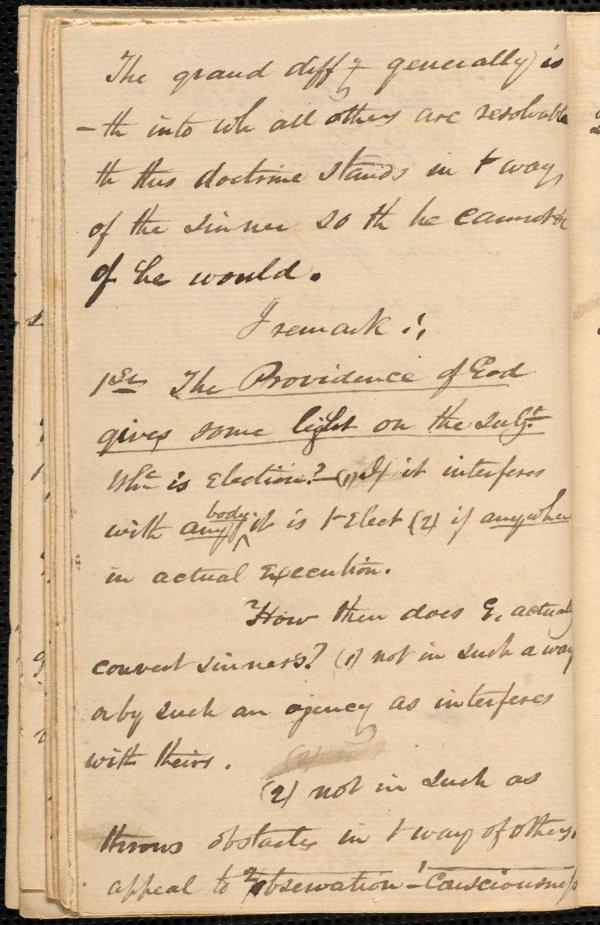 The grand diffy generally) is
– th into wh all others are resolvable
th this doctrine stands in t way
of the sinner so th he cannot
if he would.
I remark :,
1st The Providence of God
gives some light on the subjt.
Wht is Election? – (1) If it interferes
with any body it is t Elect (2) if anywhere
in actual Execution.
How then does G, actually
convert sinners? (1) not in such a way
or by such an agency as interferes
with theirs.
(2) not in such as
throws obstacles in t way of others,
appeal to 2 observation – 1 Consciousness